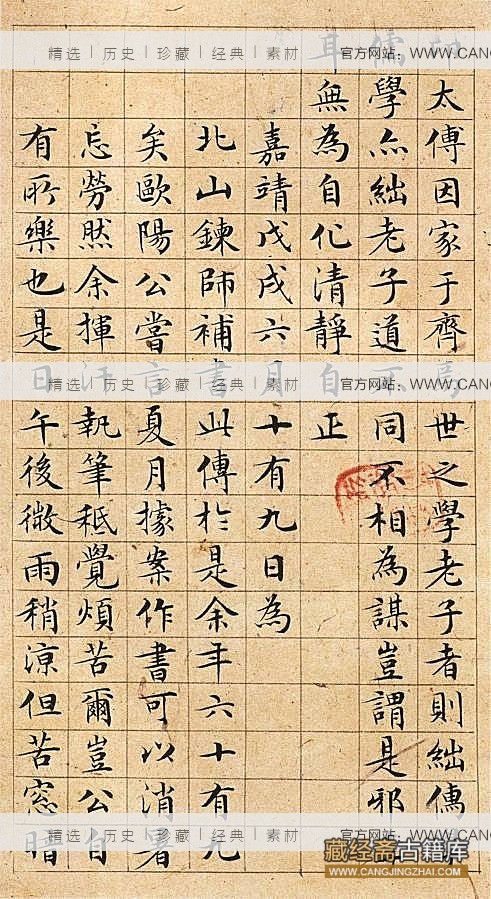 卬太傅因家于齊焉世之學老子者則絀儒學
儒學亦絀老子道不同不相為謀豈謂是邪李
耳無為自化清靜自正
嘉靖戊戌六月十有九日為
北山鍊師補書此傳於是余年六十有九
矣歐陽公嘗言夏月據案作書可以消暑
忘勞然余揮汗執筆秪覺煩苦爾豈公自
有所樂也是日午後微雨稍涼但苦窓暗
精选 | 历史 | 珍藏 | 经典 | 素材 官方网站：WWW.CANG
精选 | 历史 | 珍藏 | 经典 | 素材 官方网站：WWW.CANG
精选 | 历史 | 珍藏 | 经典 | 素材 官方网站：WWW.CANG
藏经斋古籍库
WWW.CANGJINGZHAI.COM